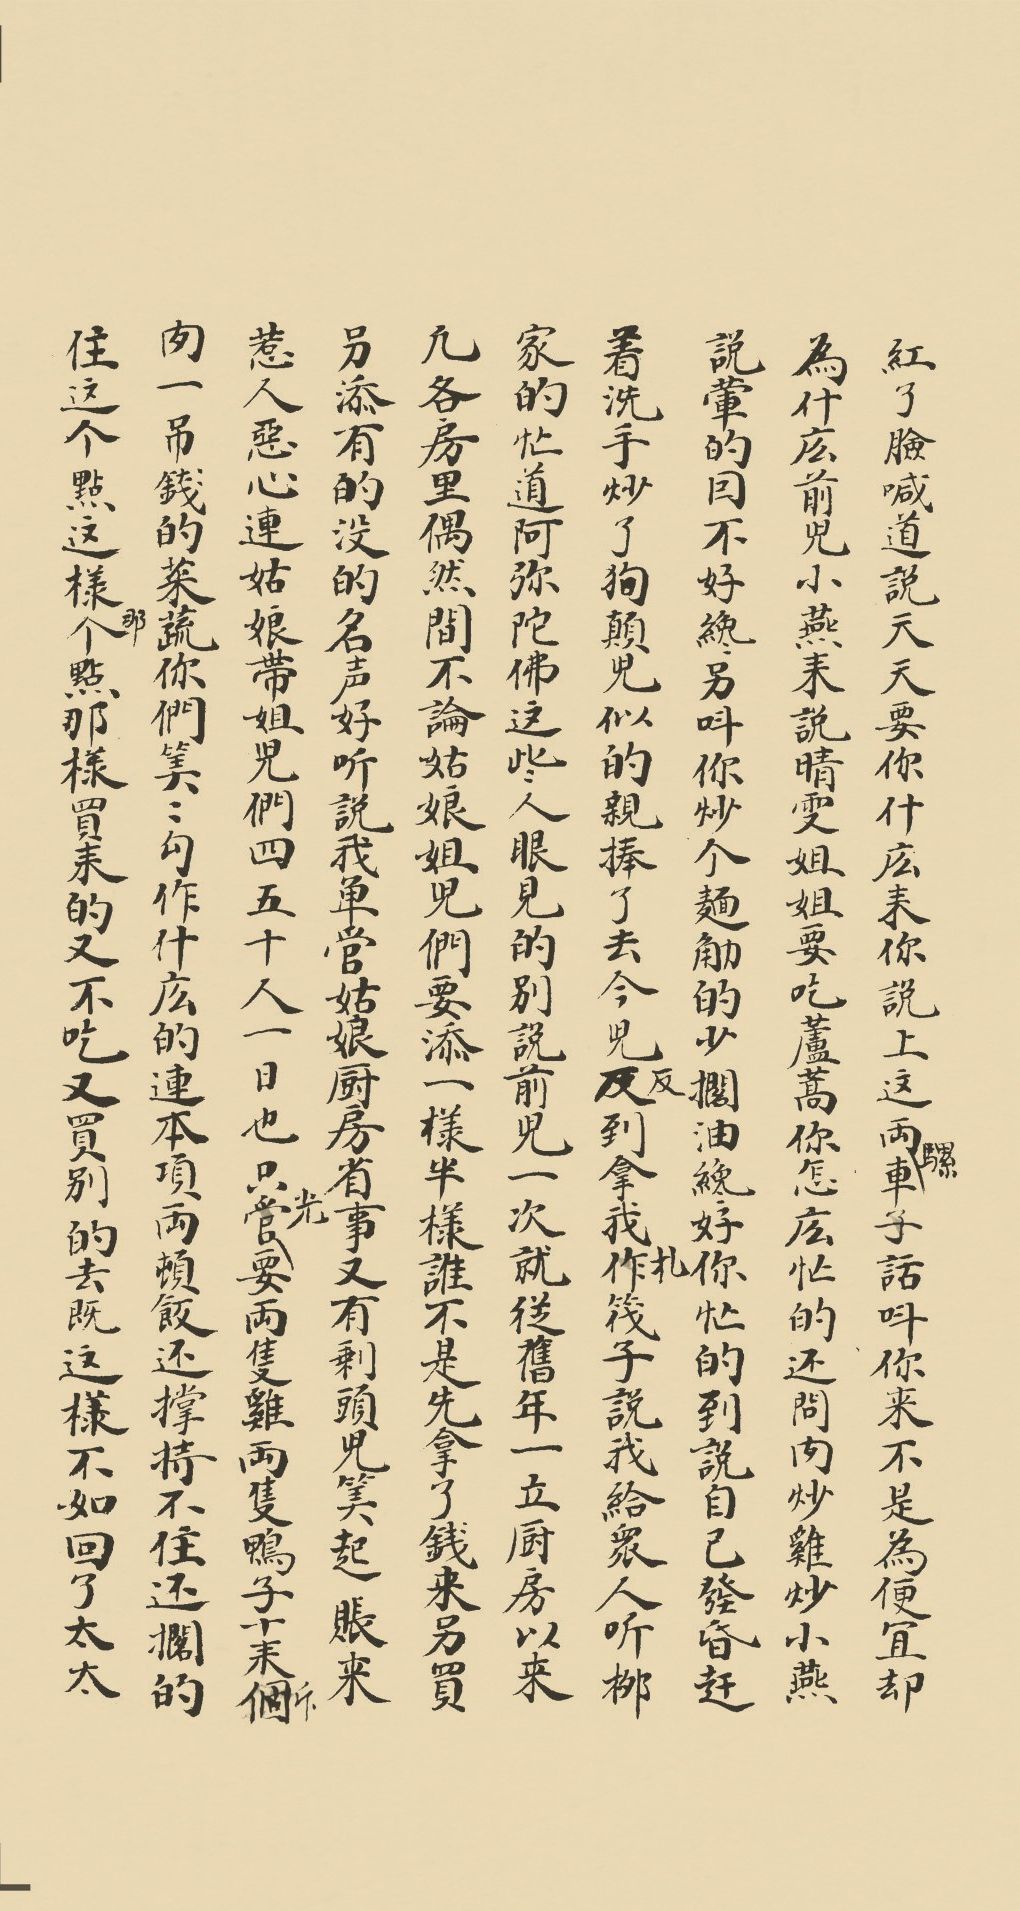 紅了臉喊道説天天要你什庅来你説上这两車騾子話呌你来不是為便宜却
為什庅前兒小燕来説晴雯姐姐要吃蘆蒿你怎庅忙的还問肉炒雞炒小燕
説葷的因不好纔另呌你炒个麵觔的少擱油纔好你忙的到説自己發昏赶
着洗手炒了狗顛兒似的親捧了去今兒反反到拿我作札筏子説我給衆人听柳
家的忙道阿弥陀佛这些人眼見的别説前兒一次就從舊年一立厨房以来
凢各房里偶然間不論姑娘姐兒們要添一様半様誰不是先拿了錢来另買
另添有的没的名声好听説我单管姑娘厨房省事又有剩頭兒筭起賬来
惹人惡心連姑娘帶姐兒們四五十人一日也只管光要両隻雞両隻鴨子十来個斤
肉一吊錢的菜蔬你們筭〻勾作什庅的連本項両頓飯还撑持不住还擱的
住这个點这様个那點那様買来的又不吃又買别的去既这様不如回了太太